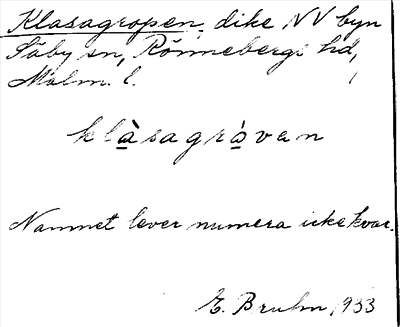 Klasagropen, dike NV byn
Säby sn, Rönnebergs hd,
Malm. l.
klàsagråvan
Namnet lever numera icke kvar.
E. Bruhn, 933